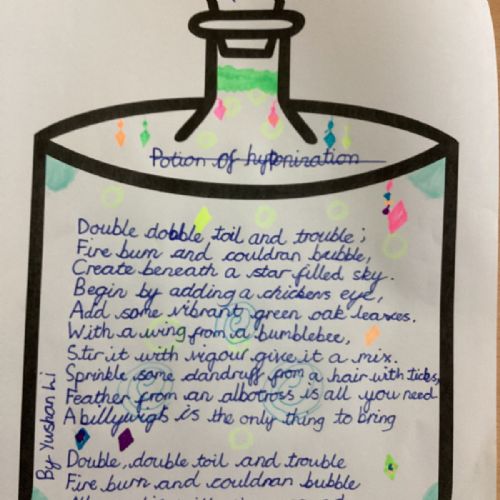 Potion of hyponization
Double dobble toil and trouble;
Fire burn and couldran bubble,
Create beneath a star filled sky.
Begin by adding a chickens eye,
Add some vibrant green oak leaves.
With a wing from a bumblebee,
Stir it with vigour give it a mix.
Sprinkle some dandruff from a hair with ticks,
Feather from an albatross is all you need
A billywigs is the only thing to bring
Double, double toil and trouble
Fire burn and couldran bubble
By Yushan Li